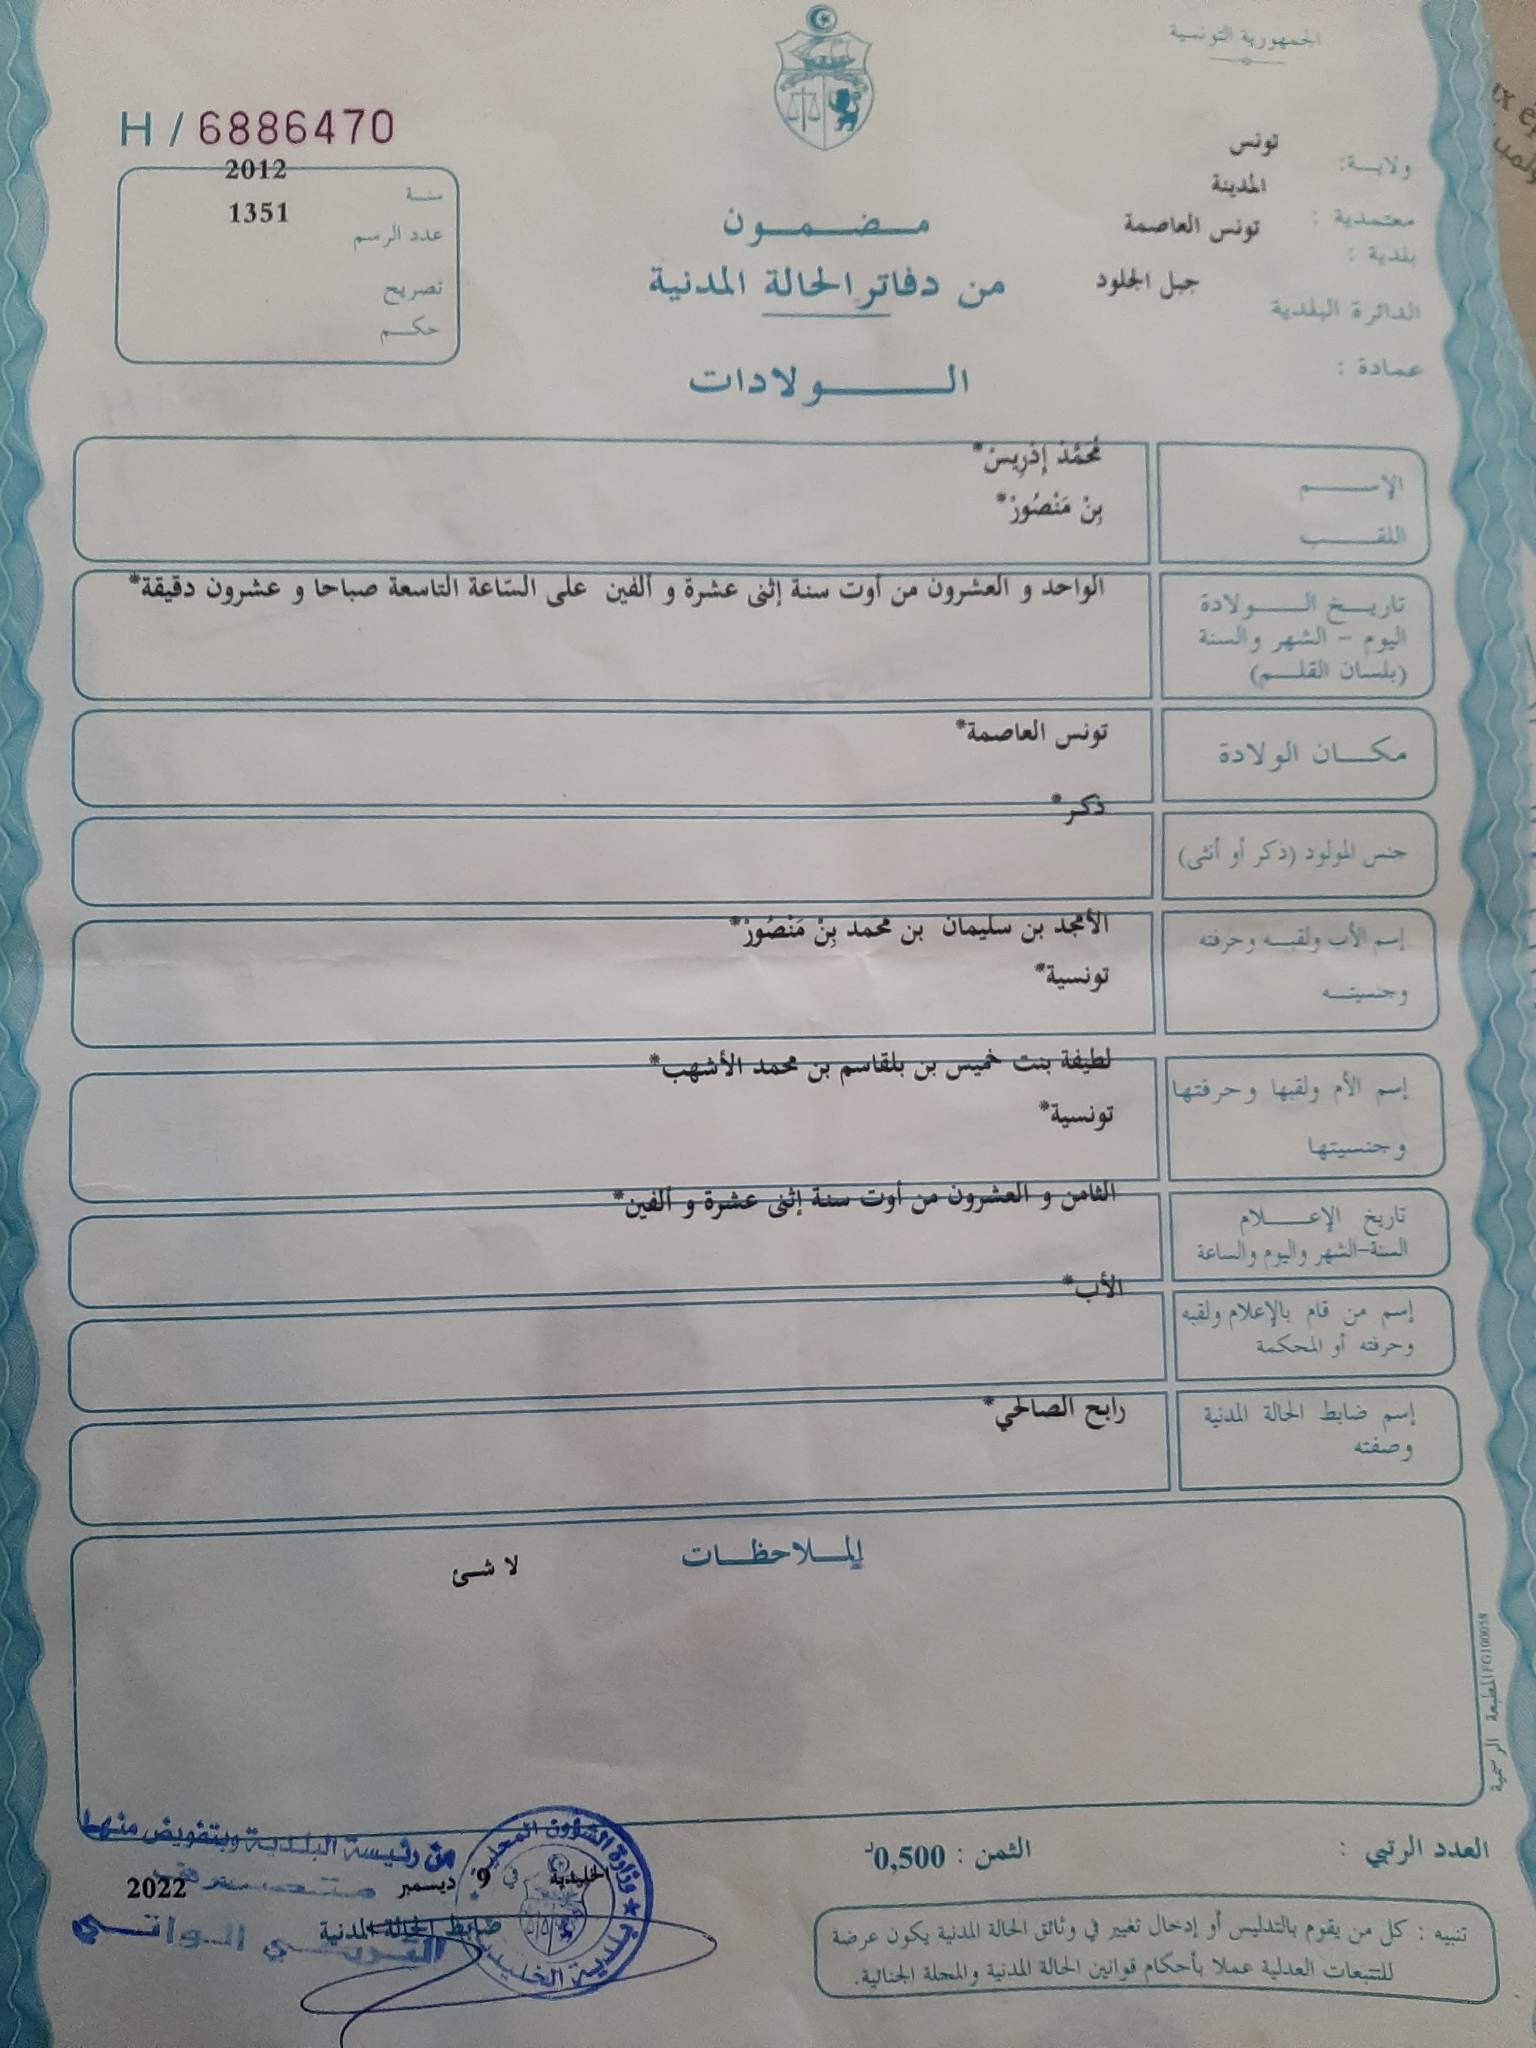 الجمهورية التونسية
H / 6886470
ولايـــة: تونس
معتمدية : المدينة
بلدية : تونس العاصمة
الدائرة البلدية جبل الجلود
عمادة :
سنـــة 2012
عدد الرسم 1351
تصريح
حكـــم
مـــضـــمـــون
من دفاتر الحالة المدنية
الـــــولادات
الإســـــم مُحَمَّدْ إدْرِيسْ*
اللقـــــب بِنْ مَنْصُورْ*
تاريـــخ الـــــولادة
اليوم - الشهر والسنة
(بلسان القلـــم)
الواحد و العشرون من أوت سنة إثنى عشرة و ألفين على السّاعة التاسعة صباحا و عشرون دقيقة*
مكـــان الولادة تونس العاصمة*
جنس المولود (ذكر أو أنثى) ذكر*
إسم الأب ولقبـــه وحرفته الأمجد بن سليمان بن محمد بِنْ مَنْصُورْ*
وجنسيتـــه تونسية*
إسم الأم ولقبها وحرفتها لطيفة بنت خميس بن بلقاسم بن محمد الأشهب*
وجنسيتها تونسية*
تاريخ الإعـــــلام
السنة-الشهر واليوم والساعة
الثامن و العشرون من أوت سنة إثنى عشرة و ألفين*
إسم من قام بالإعلام ولقبه
وحرفته أو المحكمة
الأب*
إسم ضابط الحالة المدنية
وصفته
رابح الصالحي*
الملاحظـــات
لا شئ
المطبعة الرسمية FG100058
العدد الرتبي :
الثمن : 0,500د
تنبيه : كل من يقوم بالتدليس أو إدخال تغيير في وثائق الحالة المدنية يكون عرضة
للتتبعات العدلية عملا بأحكام قوانين الحالة المدنية والمجلة الجنائية.
عن رئيسة البلدية وبتفويض منها
الخليدية في 9 ديسمبر 2022
ضابط الحالة المدنية
وزارة الشؤون المحلية